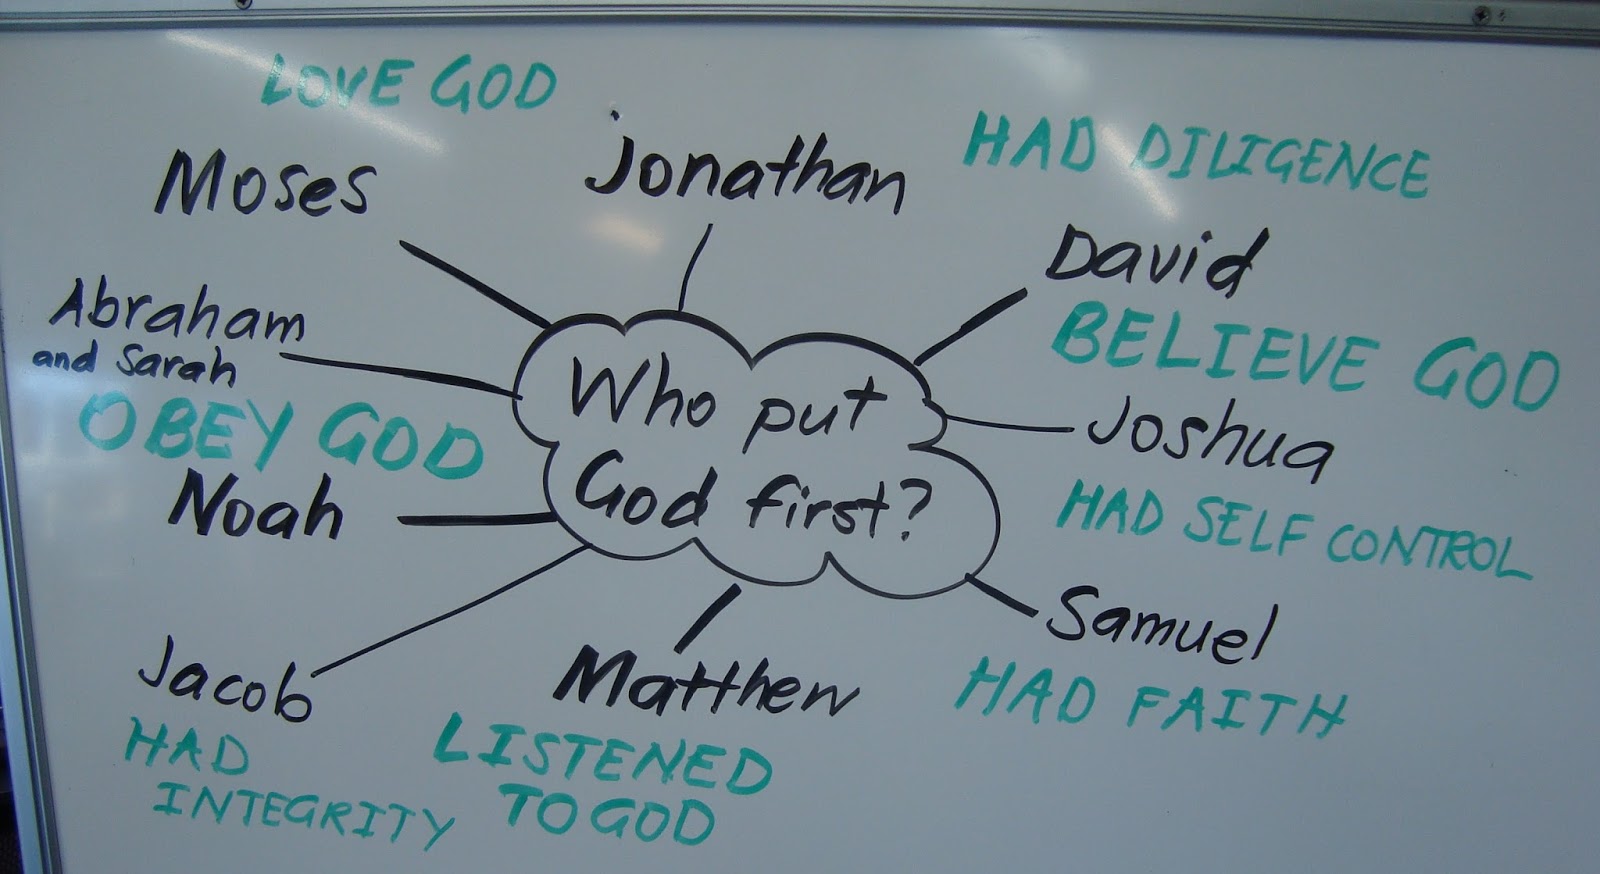 LOVE GOD
Moses
Jonathan
HAD DILIGENCE
David
Abraham
and Sarah
BELIEVE GOD
OBEY GOD
Who put
God first?
Joshua
Noah
HAD SELF CONTROL
Samuel
Jacob
Matthew
HAD FAITH
HAD
INTEGRITY
LISTENED
TO GOD